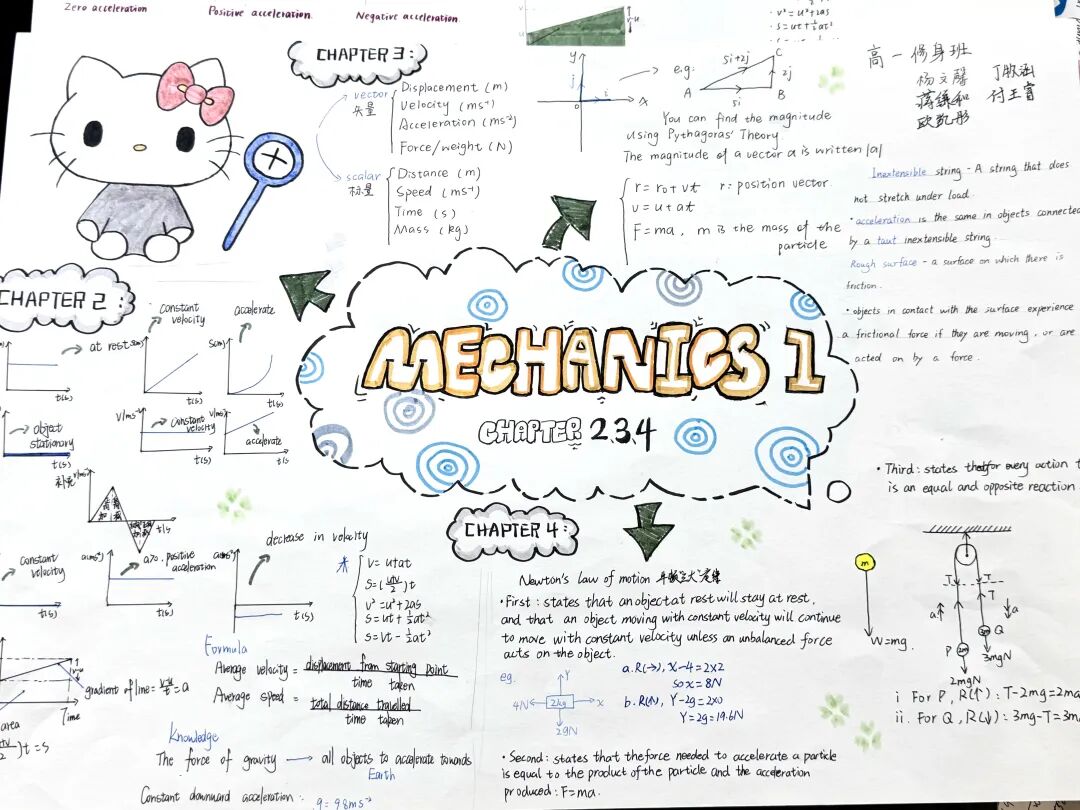 Zero acceleration
Positive acceleration.
Negative acceleration.
v²=u²+2as
s=ut+½at²
CHAPTER 3:
vector
矢量
Displacement (m)
Velocity (ms⁻¹)
Acceleration (ms⁻²)
Force/weight (N)
scalar
标量
Distance (m)
Speed (ms⁻¹)
Time (s)
Mass (kg)
y
j
o
i
x
e.g:
A
B
C
5i+2j
2j
5i
You can find the magnitude
using Pythagoras' Theory
The magnitude of a vector a is written |a|
r=r₀+vt r:position vector.
v=u+at
F=ma, m is the mass of the
particle
高一修身班
杨文馨
Inextensible string - A string that does
not stretch under load.
·acceleration is the same in objects connected
by a taut inextensible string.
Rough surface - a surface on which there is
friction.
·objects in contact with the surface experience
a frictional force if they are moving, or are
acted on by a force.
MECHANICS 1
CHAPTER 2.3.4
CHAPTER 2:
at rest
t(s)
constant
velocity
S(m)
t(s)
accelerate
S(m)
t(s)
object
stationary
t(s)
V/ms⁻¹
constant
velocity
t(s)
V(ms⁻¹)
accelerate
t(s)
补充
t(s
constant
velocity
t(s)
a(ms⁻²)
a>0, positive
acceleration
t(s)
decrease in velocity
a(ms⁻²)
t(s)
V=utat
S=(u+v/2)t
v²=u²+2as
S=ut+½at²
S=Vt-½at²
gradient of line=v-u/t=a
Time
area
)t=S
Formula
Average velocity = displacement from starting point
time taken
Average speed = total distance travelled
time taken
Knowledge
The force of gravity → all objects to accelerate towards
Earth
Constant downward acceleration:
g=9.8ms⁻²
CHAPTER 4:
Newton's law of motion 牛顿三大定律
·First: states that an object at rest will stay at rest,
and that an object moving with constant velocity will continue
to move with constant velocity unless an unbalanced force
acts on the object.
eg.
4N
2kg
Y
x
2gN
a.R(→), X-4=2×2
so x=8N
b.R(↑), Y-2g=2×0
Y=2g=19.6N
·Second: states that the force needed to accelerate a particle
is equal to the product of the particle and the acceleration
produced: F=ma.
·Third: states that for every action t
is an equal and opposite reaction
m
W=mg.
T
T
T
a
a
P
2m
Q
3m
2mgN
3mgN
i For P, R(↑): T-2mg=2ma
ii. For Q, R(↓): 3mg-T=3m